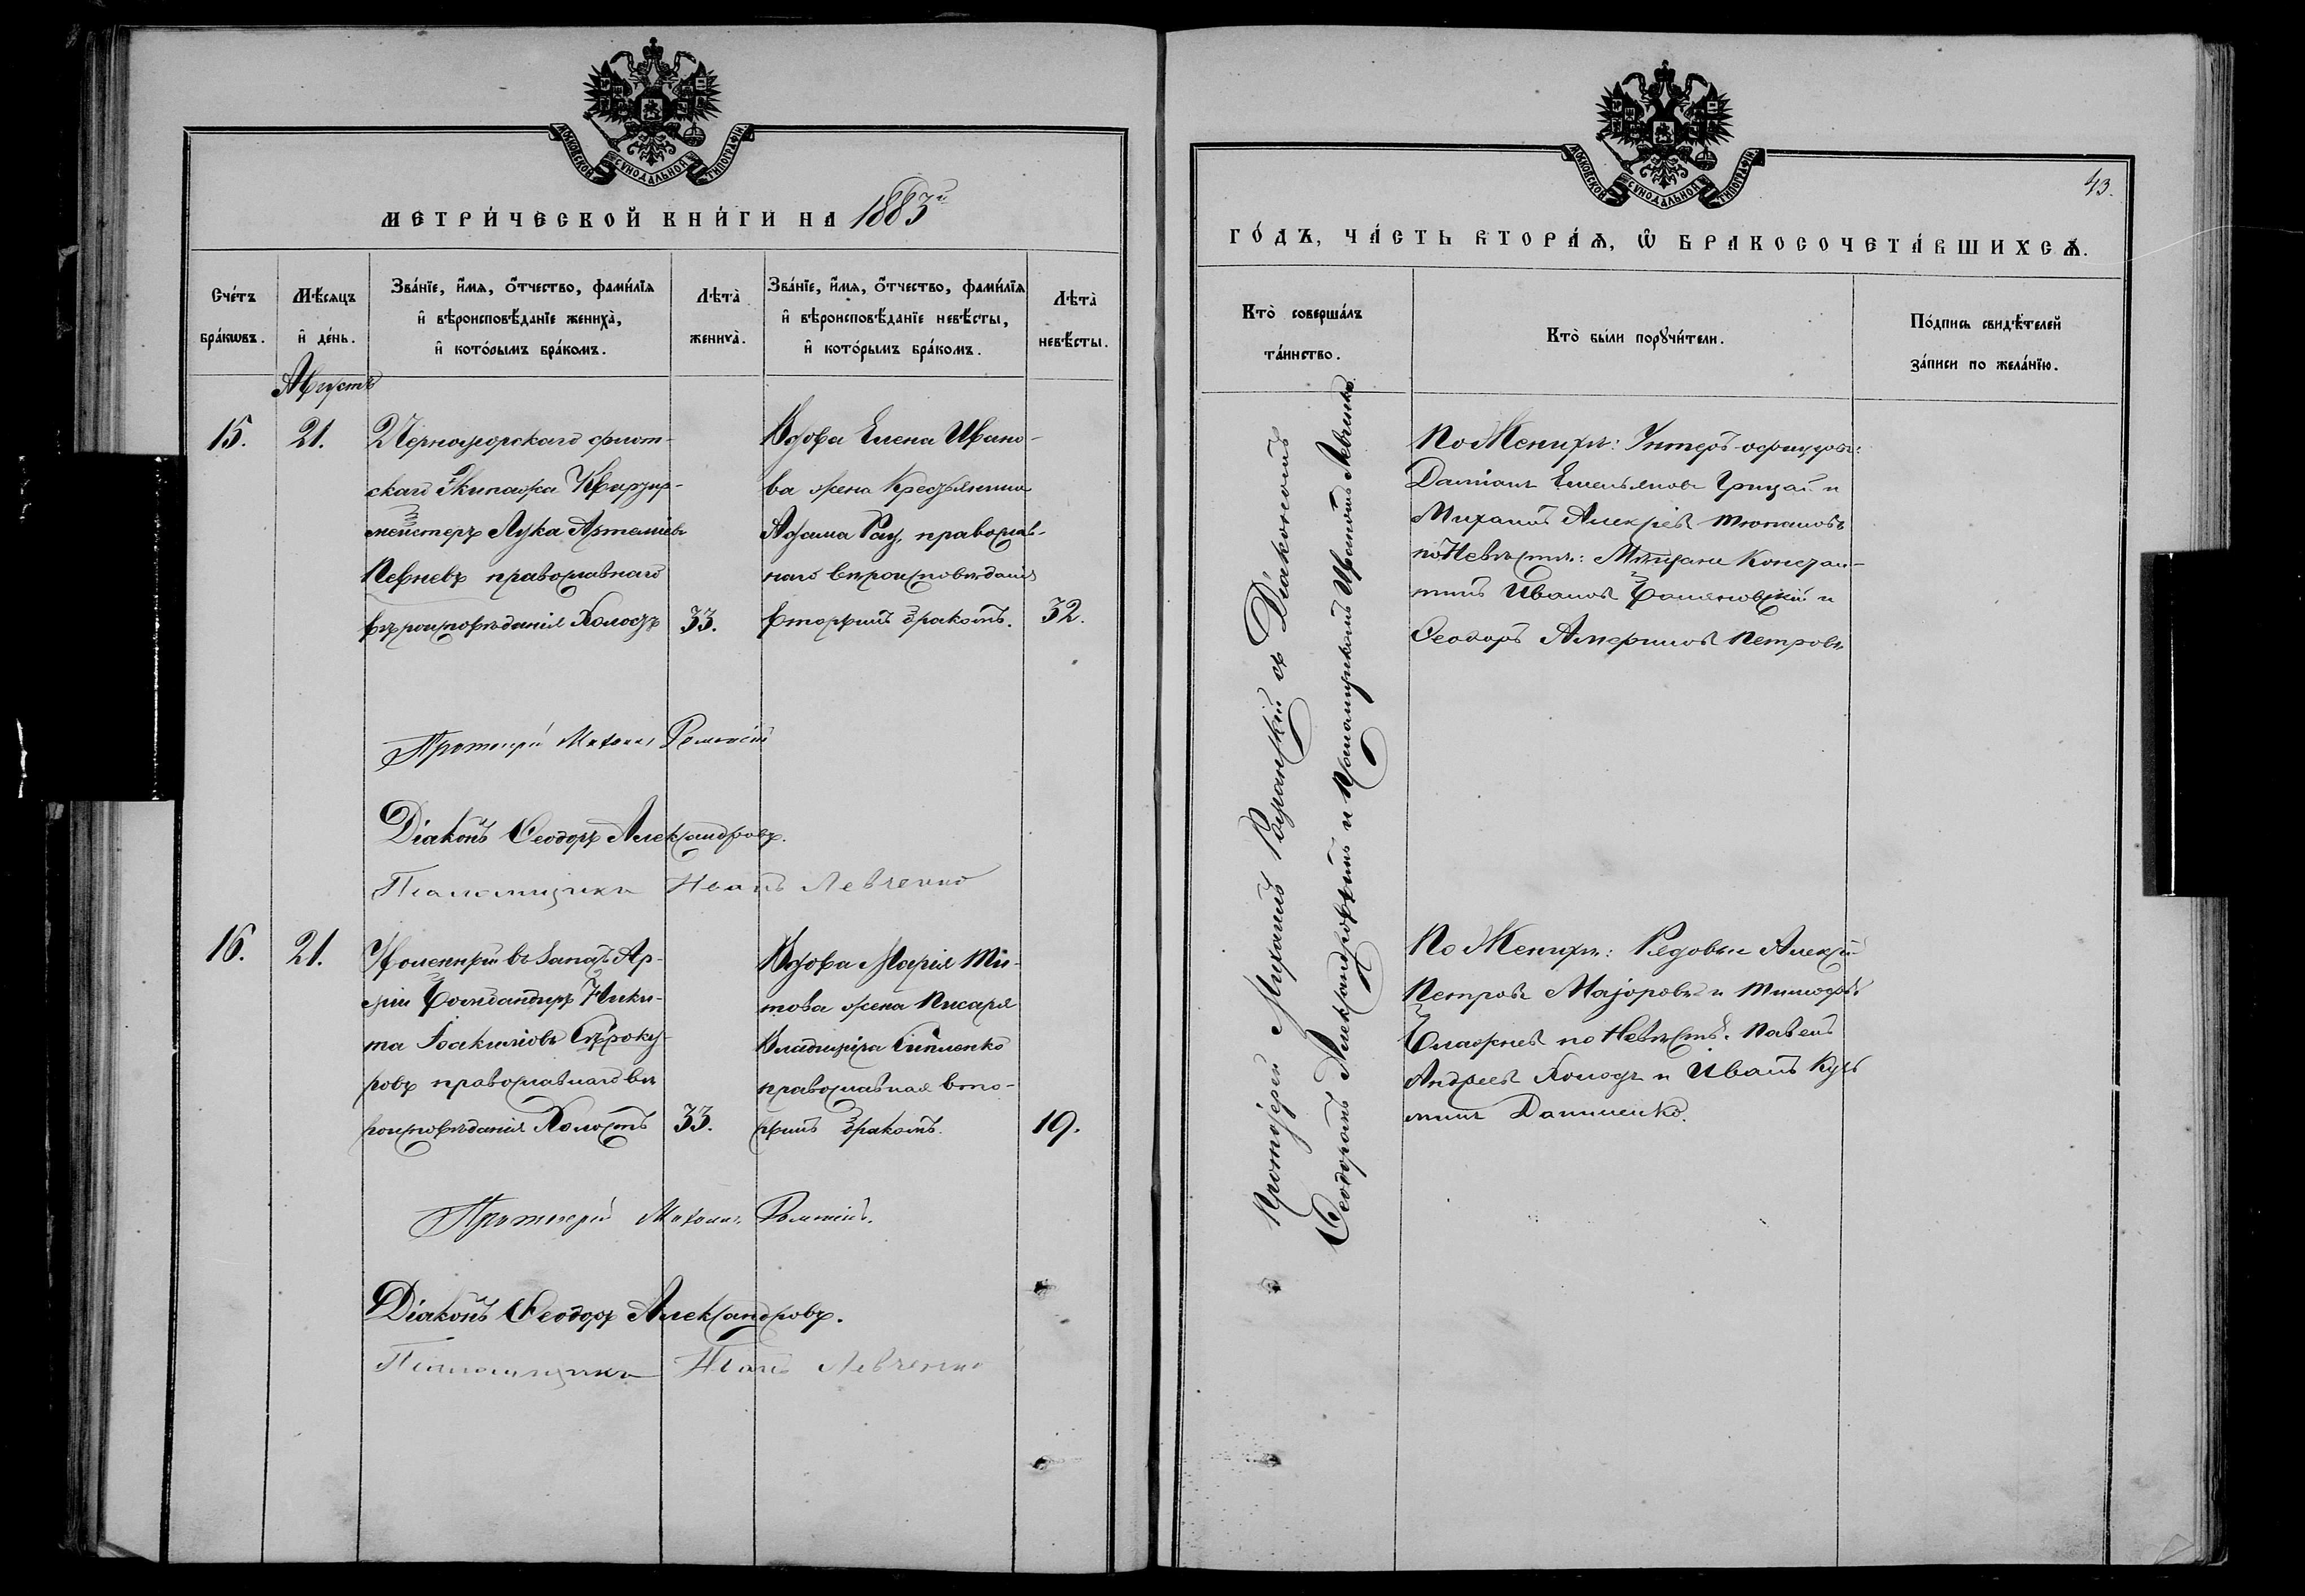 МОСКОВСКОЙ СѴНОДАЛЬНОЙ ТИПОГРАФІИ.
МЕТРИ́ЧЕСКОЙ КНИ́ГИ НА 1883й
Сче́тъ бра́кѡвъ.
Мѣ́сѧцъ и҆ де́нь.
Зва́нїе, и҆́мѧ, ѻ҆́тчество, фами́лїѧ и҆ вѣроисповѣ́данїе жениха̀, и҆ кото́рымъ бра́комъ.
Лѣта̀ жениха̀.
Зва́нїе, и҆́мѧ, ѻ҆́тчество, фами́лїѧ и҆ вѣроисповѣ́данїе невѣ́сты, и҆ кото́рымъ бра́комъ.
Лѣта̀ невѣ́сты.
Августъ
15.
21.
Черноморскаго флот-
скаго Экипажа Квартир-
мейстеръ Лука Артемьевъ
православнаго
вѣроисповѣданія Холостъ
33.
Вдова Елена Ивано-
ва жена Крестьянина
Адама Рац, православ-
наго вѣроисповѣданія
вторымъ бракомъ.
32.
Протоіерей Михаилъ
Діаконъ Ѳеодоръ Александровъ.
Псаломщикъ Иванъ Левченко
16.
21.
Уволенный въ запасъ Ар-
міи Бомбандиръ Ники-
та Іоакимовъ
ровъ православнаго вѣ-
роисповѣданія Холостъ
33.
Вдова Марія Ти-
това жена Писаря
Владиміра
православная вто-
рымъ бракомъ.
19.
Протоіерей Михаилъ
Діаконъ Ѳеодоръ Александровъ.
Псаломщикъ Иванъ Левченко
МОСКОВСКОЙ СѴНОДАЛЬНОЙ ТИПОГРАФІИ.
43.
ГО́ДЪ, ЧА́СТЬ ВТОРА́Ѧ, Ѡ҆ БРАКОСОЧЕТА́ВШИХСѦ.
Кто̀ соверша́лъ та́инство.
Кто̀ бы́ли порꙋчи́тели.
По́дпись свидѣ́телей за́писи по жела́нїю.
Протоіерей Михаилъ съ Діакономъ
Ѳеодоромъ Александровымъ и Псаломщикомъ Иваномъ Левченко
По Женихѣ: Унтеръ-офицеры:
Даміанъ Емельяновъ Грицай и
Михаилъ Алексѣевъ
по Невѣстѣ: Мѣщане Констан-
тинъ Ивановъ и
Ѳеодоръ Петровъ
По Женихѣ: Рядовые Алексѣй
Петровъ Маіоровъ и Тимоѳей
по Невѣстѣ: Павелъ
Андреевъ Холодъ и Иванъ Кузь
минъ Даниленко.